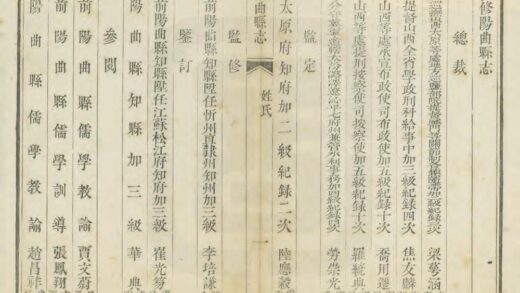 修陽曲縣志
總裁
山西太原等處地方 梁萼涵
提督山西全省學政刑科給事中加三級紀錄四次 焦友麟
山西等處承宣布政使司布政使加五級紀錄十次 喬用遷
山西等處提刑按察使司按察使加五級紀錄十次 羅繞典
沁平七府州兼管水利事務加四級紀錄四次 勞崇光
監定
太原府知府加二級紀錄二次 陸應穀
曲縣志 姓氏 一
監修
前陽曲縣知縣陞任忻州直隸州知州加三級 李培謙
鑒訂
前陽曲縣知縣陞任江蘇松江府知府加三級 崔光笏
陽曲縣知縣加三級 華典
參閱
前陽曲縣儒學教諭 賈文蔚
前陽曲縣儒學訓導 張鳳翔
陽曲縣儒學教諭 趙昌祥